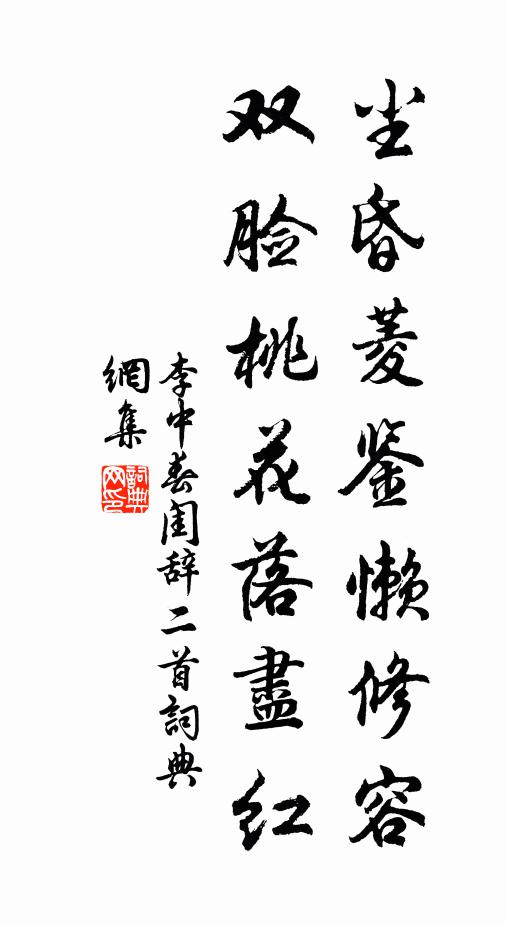 尘昏菱鉴懒修容
双脸桃花落盡红
李中春闺辞二首詞典
網集
詞典
网印